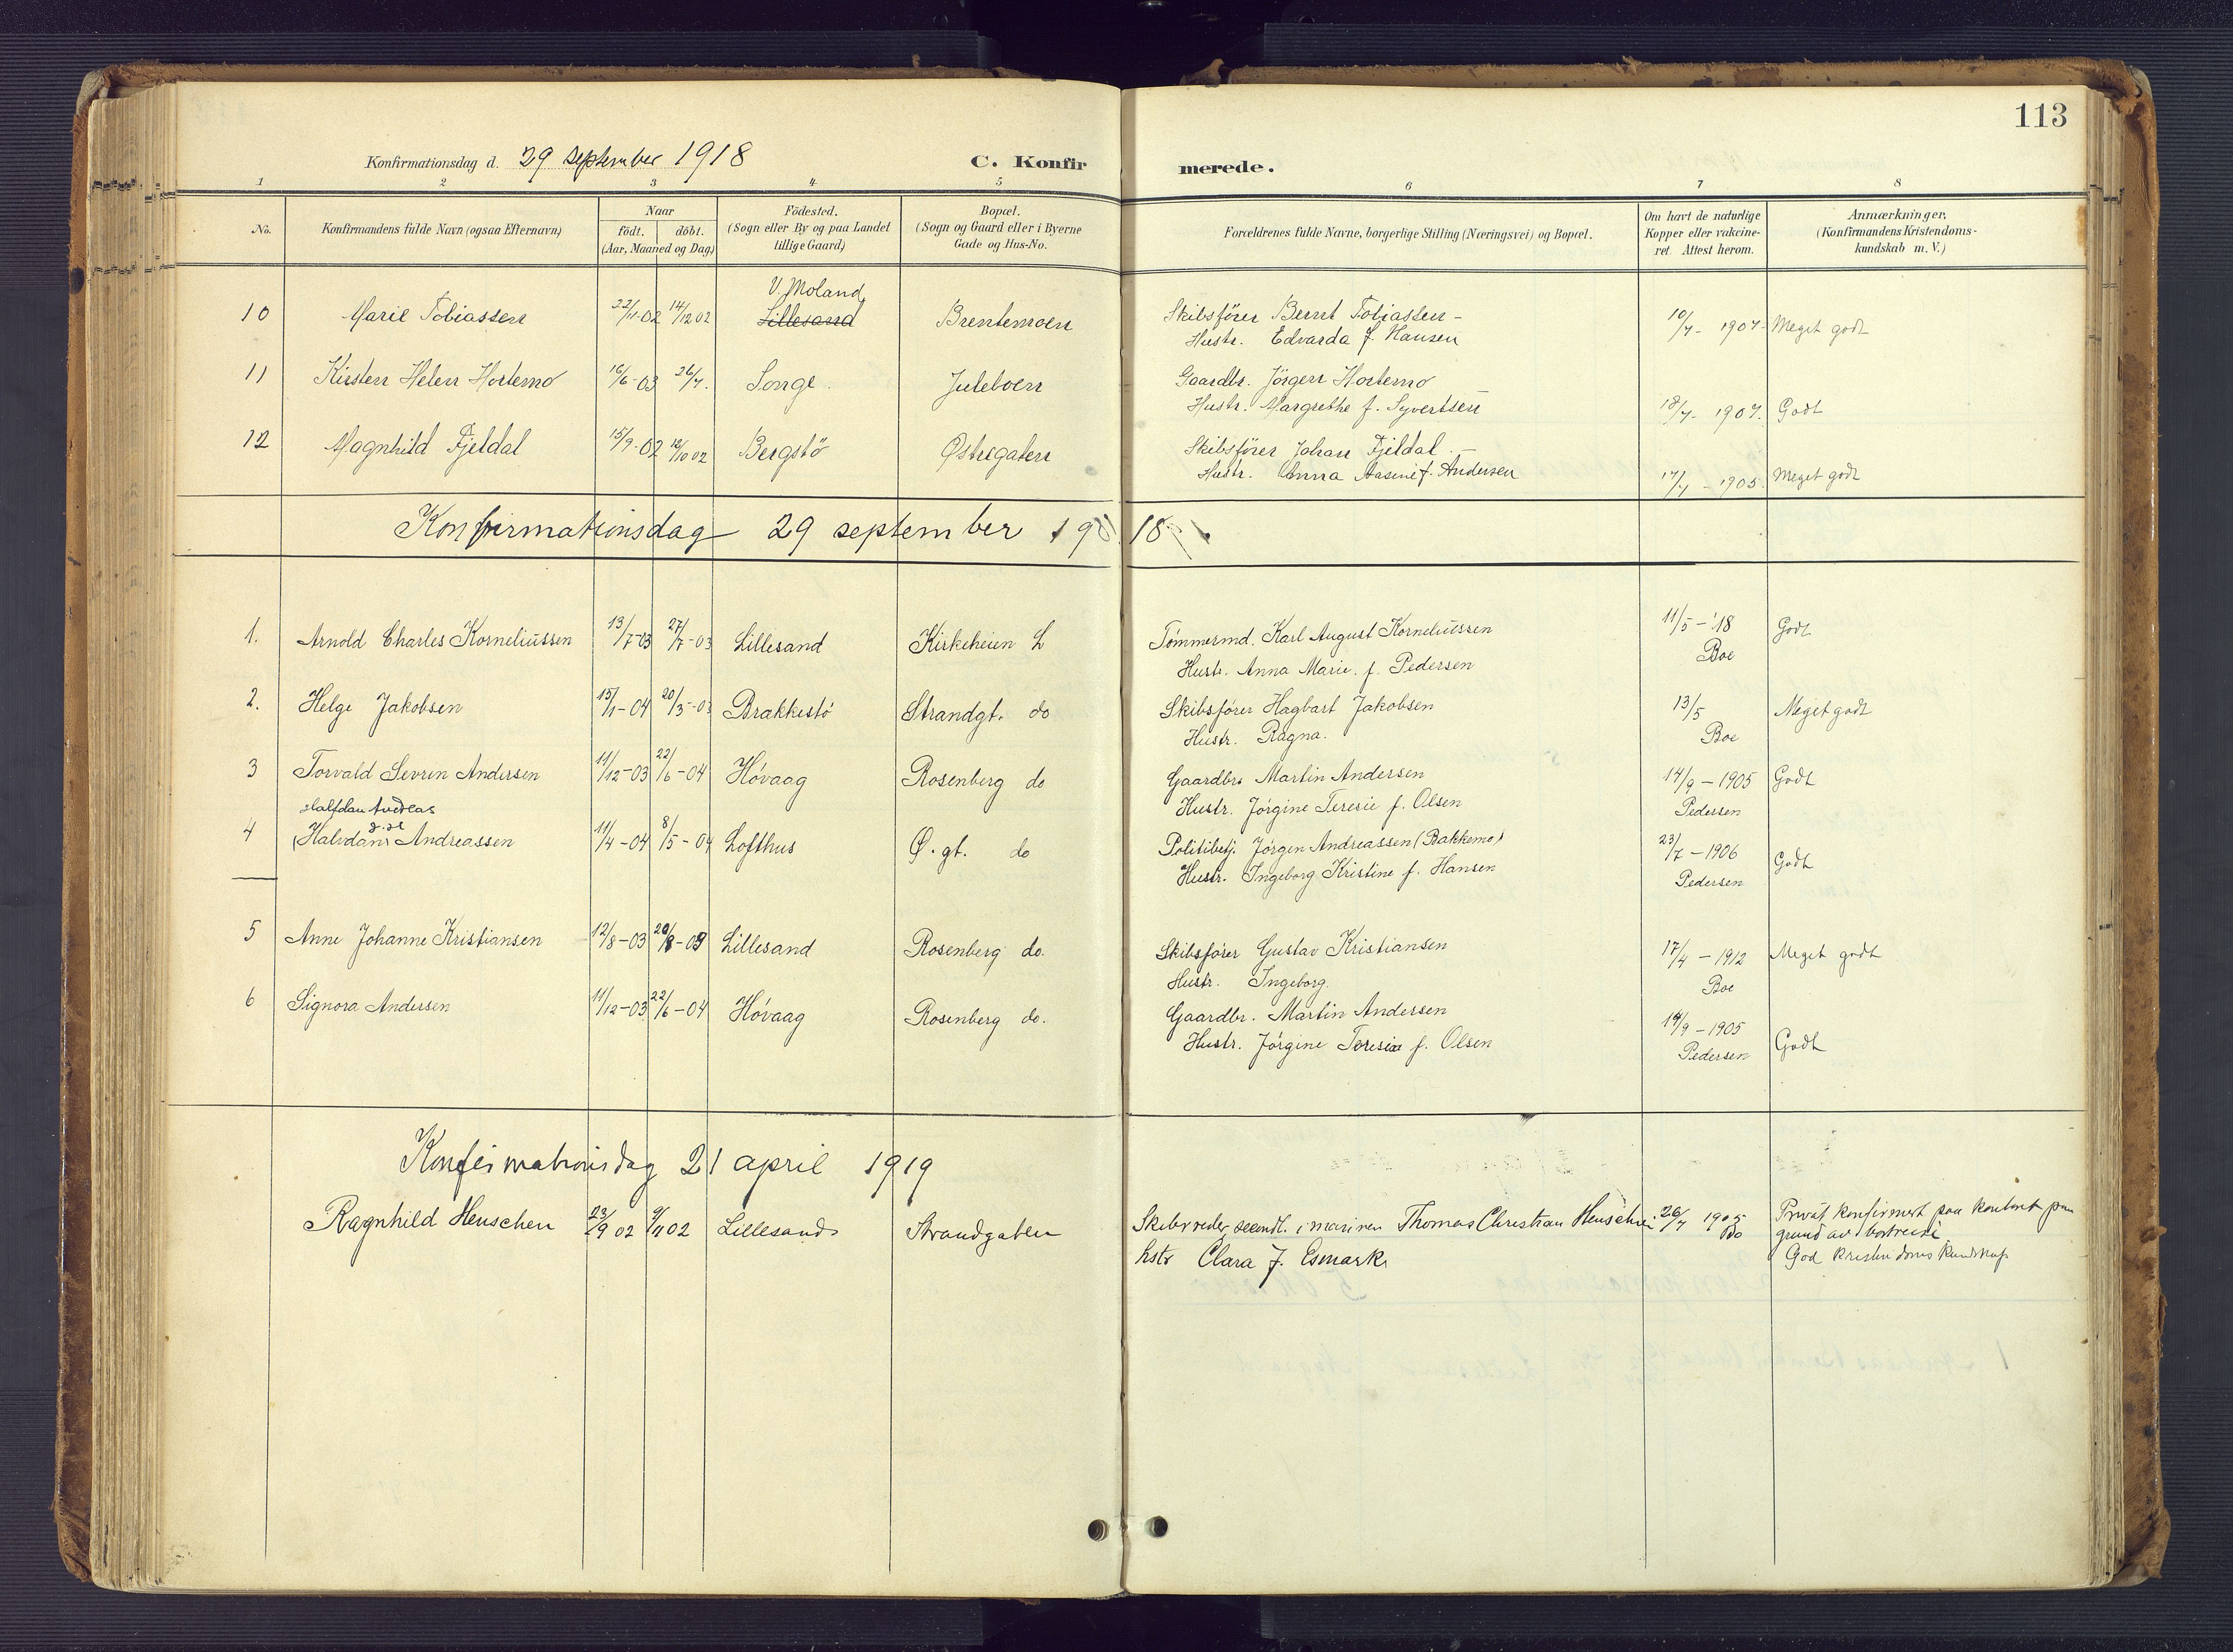 113
Konfirmationsdag d. 29 september 1918 C. Konfirmerede.
1 2 3 4 5 6 7 8
No. Konfirmandens fulde Navn (ogsaa Efternavn) Naar födt. döbt. (Aar, Maaned og Dag) Födested. (Sogn eller By og paa Landet tillige Gaard) Bopæl. (Sogn og Gaard eller i Byerne Gade og Hus-No. Forældrenes fulde Navne, borgerlige Stilling (Næringsvei) og Bopæl. Om havt de naturlige Kopper eller vakcineret. Attest herom. Anmærkninger, (Konfirmandens Kristendomskundskab m. V.)
V. Moland
10 Marie Tobiassen 22/11-02 14/12 02 Lillesand Brentemoen Skibsfører Bernt Tobiassen - 10/7- 1907- Meget godt
Hustr. Edvarda f. Hansen
11 Kirsten Helen Hortemo 16/6-03 26/7. Songe. Juleboen Gaardbr. Jörgen Hortemo
Hustr. Margrethe f. Syvertsen 18/7- 1907. Godt
12 Magnhild Fjeldal 15/9-02 Bergstö Østregaten Skibsfører Johan Fjeldal -
Hustr. Anna Aasine f. Andersen 17/7 - 1905. Meget godt
Konfirmationsdag 29 september 1918
1. Arnold Charles Korneliussen 13/7-03 27/7-03 Lillesand Kirkeheien L Tømmermd. Karl August Korneliussen 11/5-'18 Godt
Hustr. Anna Marie. f. Pedersen Boe
2. Helge Jakobsen 15/1-04 20/3-03 Brækkestø Strandgt. do Skibsfører Hagbart Jakobsen 13/5 Meget godt
Hustr. Ragna. Boe
3 Torvald Severin Andersen 11/12-03 22/6-04 Høvaag Rosenberg do Gaardbr. Martin Andersen 14/9-1905 Godt
Hustr. Jørgine Teresie f. Olsen Pedersen
Halfdan Andreas
4 (Halvdan) Andreassen 11/4-04 8/5-04 Lofthus Ø. gt. do Politibetj. Jørgen Andreassen (Bakkemo) 23/7-1906 Godt
Hustr. Ingeborg Kristine f. Hansen Pedersen
5 Anne Johanne Kristiansen 12/8-03 20/8-03 Lillesand Rosenberg do. Skibsfører Gustav Kristiansen 17/4-1912 Meget godt
Hustr. Ingeborg. Boe
6 Signora Andersen 11/12-03 22/6-04 Høvaag Rosenberg do. Gaardbr. Martin Andersen 14/9-1905
Hustr. Jørgine Teresia f. Olsen Pedersen Godt
Konfirmationsdag 21 april 1919
Ragnhild Henschen 23/9 02 9/11 02 Lillesand Strandgaten Skibsreder, i marinen Thomas Christian Henschen 26/7 1905 Privat konfirmert paa kontoret paa
hstr Clara f. Esmark grund av bortreise
God kristendoms kundskap